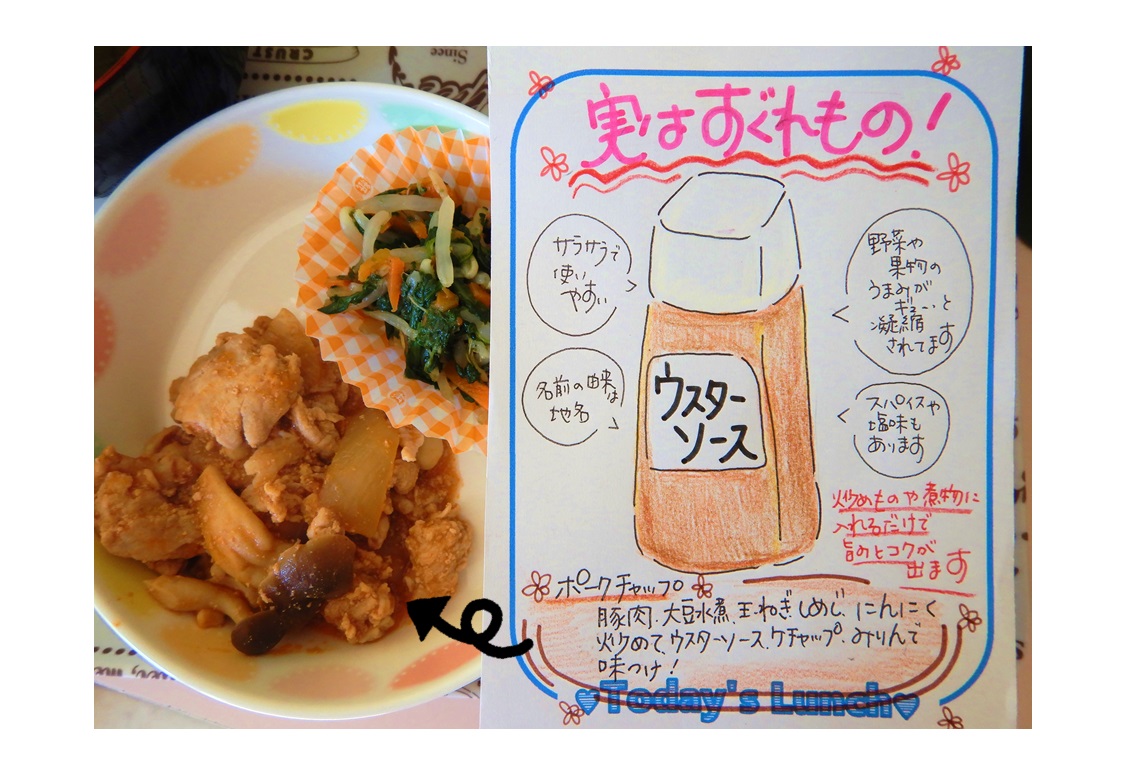 CRUST
Since
実はすぐれもの!
サラサラで
使い
やすい
野菜や
果物の
うまみが
ギューっと
凝縮
されてます
名前の由来は
地名
スパイスや
塩味も
あります
ウスター
ソース
炒めものや煮物に
入れるだけで
旨みとコクが
出ます
ポークチャップ
豚肉、大豆水煮、玉ねぎ、しめじ、にんにく
炒めて、ウスターソース、ケチャップ、みりんで
味つけ!
♥Today's Lunch♥